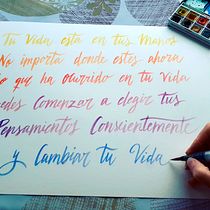 Tu Vida está en tus Manos
No importa donde estes ahora
o que ha ocurrido en tu Vida
edes Comenzar a elegir tus
Pensamientos Conscientemente
y Cambiar tu Vida